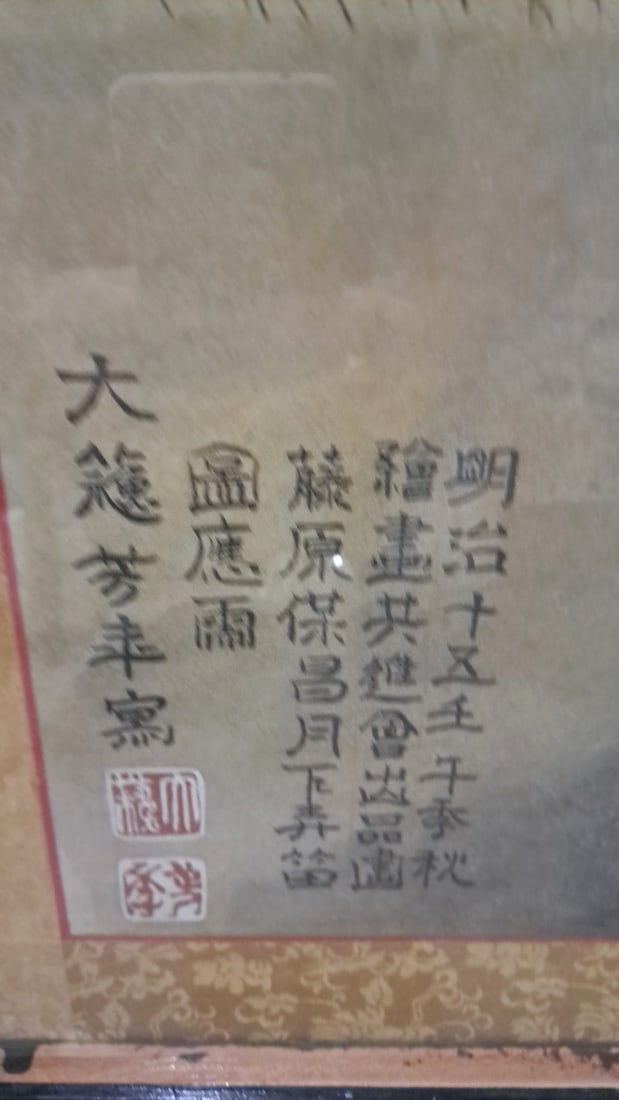 明治十五壬午季秋
繪畫共進會出品画
藤原保昌月下弄笛
圖應需
大蘓芳年寫
大蘓
芳年